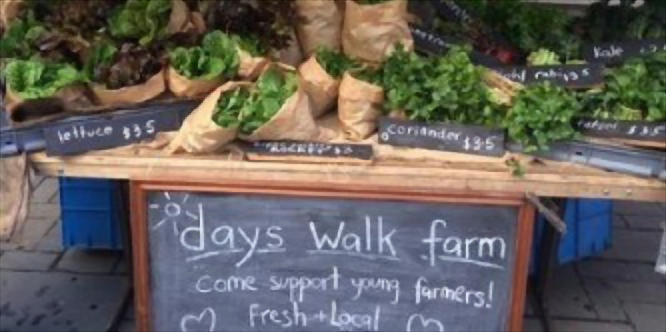 Kale
kohl rabi $3.5
lettuce $3.5
coriander $3.5
$3.5
days walk farm
come support young farmers!
Fresh + Local